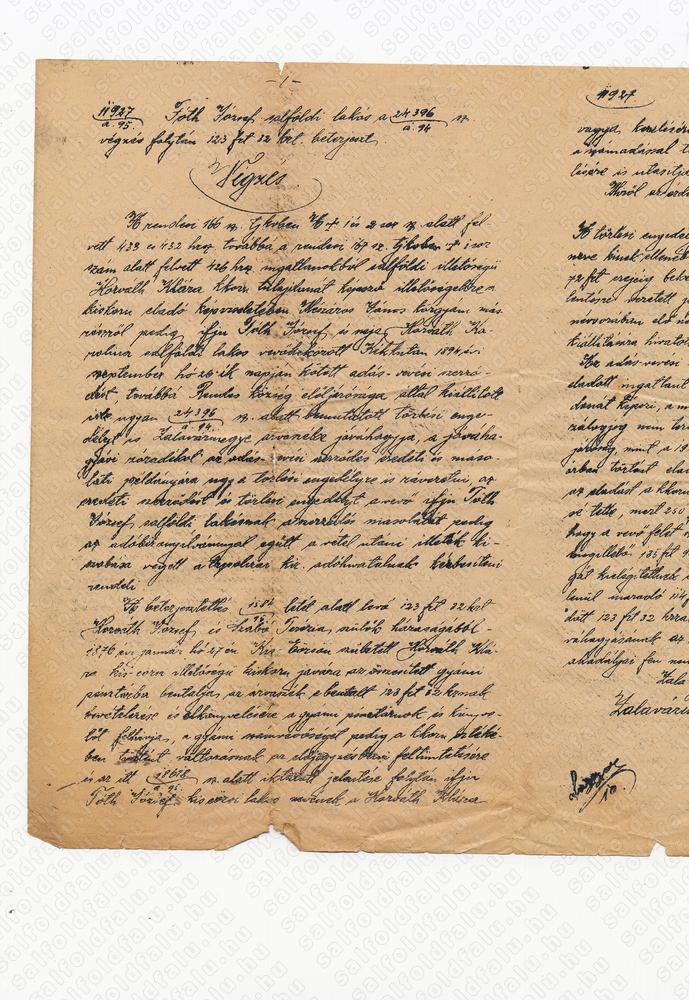 -/-
11927
a. 95.
Tóth József salföldi lakós a 24396
a. 94 sz.
végzés folytán 123 frt 32 krt. beterjeszt.
Végzés
A rendesi 166 sz. tjkvben A + 1 és 2 sor sz. alatt fel-
vett 433 és 432 hrsz. továbbá a rendesi sz. tjkvben + 1 sor
szám alatt felvett 426 hrsz. ingatlanokból salföldi illetőségű
Horváth Klára kkorú tulajdonát képező illetőségekre a
kiskorú eladó képviseletében Mészáros János közgyám más
részről pedig ifju Tóth József és neje Horváth Ka-
rolina salföldi lakos vevők között 1894 évi
szeptember hó 26-ik napján kötött adás-vevési szerző-
dést, továbbá Rendes község elöljárósága által kiállított
ugyan 24396
a. 94. sz. alatt bemutatott törlési enge-
délyt is Zalavármegye árvaszéke jóváhagyja, a jóváha-
gyási záradékot az adás-vevési szerződés eredeti és máso-
lati példányára úgy a törlési engedélyre is rávezetni, az
eredeti szerződést és törlési engedélyt a vevő ifju Tóth
József salföldi lakósnak, a szerződés másolatát pedig
az adóbizonyítvánnyal együtt a vétel utáni illeték ki-
szabása végett a tapolczai kir. adóhivatalnak kézbesíteni
rendeli.
A beterjesztettés letét alatt levő 123 frt 32 krt
Horváth József és Szabó Terézia szülők házasságából
1876 évi január hó 27 én Kis-Eörsön született Horváth Klá-
ra kis-eörsi illetőségű kiskorú javára az összesített gyámi
pénztárba beutalja, az árvaszék e beutalt 123 frt 32 krnak
bevételezése és elkönyvelésére a gyámi pénztárnok és könyve-
lőt felhívja, a gyámi számvevőséget pedig a kkorú értéké-
ben történt változásnak az alapjegyzékbeni feltüntetésére
és az itt 18618
a. 95. sz. alatt iktatott jelentése folytán ifju
Tóth József kiseörsi lakos vevőnek a Horváth Klára
11927
vagyá kezelésére
a számadással
lésére is utasítja
Miről az érde
A törlési engedé
neve kinek ellenéb
72 frt erejéig bek
lentésre vezetett
névsorában elő ne
kiállítására hivatott
Az adás-vevési
eladott ingatlant
donát képezi, a m
zálogjog nem ter
járóság mint a 19
árban történt elad
az eladást a kkorú
vé tette, mert 250
hogy a vevő felet
megillető 135 frt
gát kielégítettnek
lenül maradó 114 f
dött 123 frt 32 krra
váhagyásának az
akadályai fen nem
Zala
Zalavár
10.